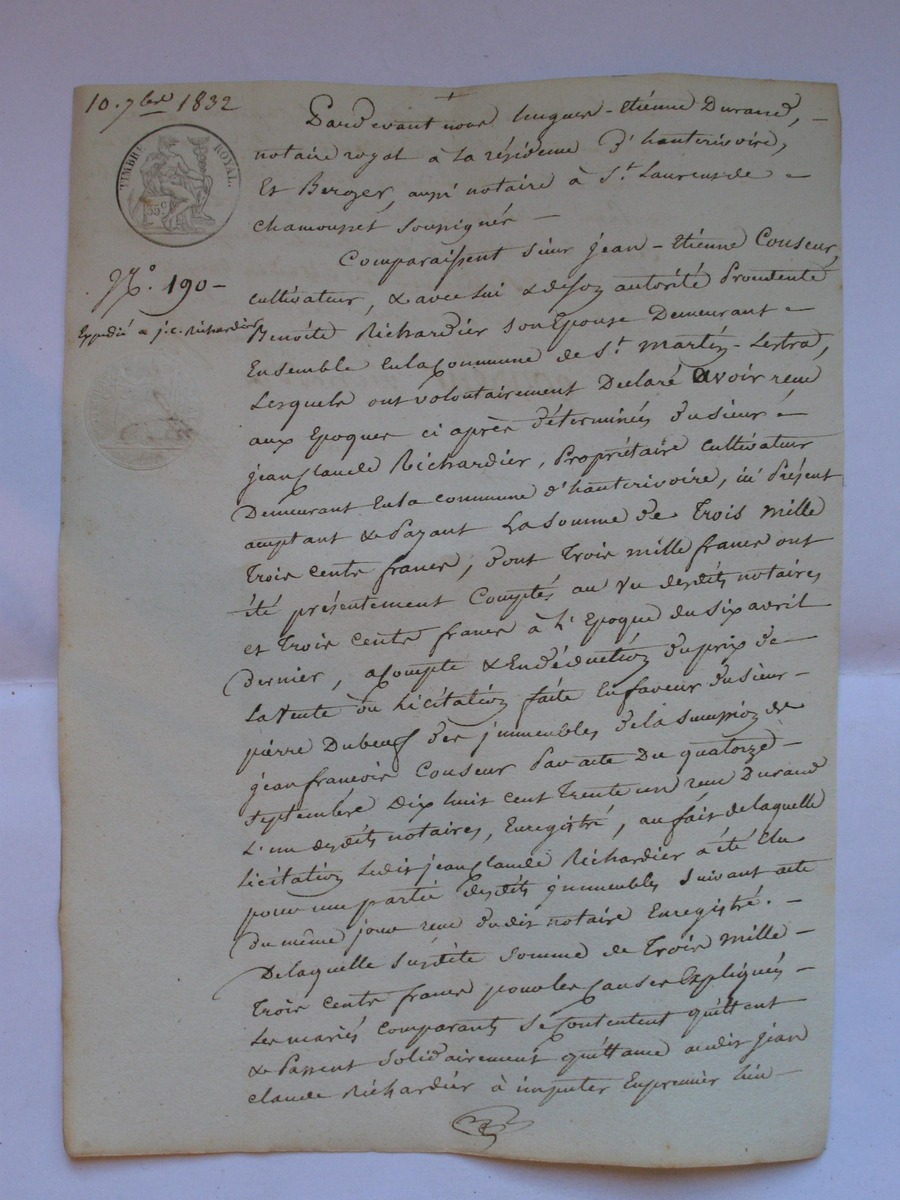 10. 7bre 1832
TIMBRE ROYAL.
35 c
N.° 190 -
Expédié à j. c. Richardier
Pardevant nous hugues-Etiénne Durand, -
notaire royal à la résidence D'hauterivoire,
Et Berger, aussi notaire à St. Laurent de -
Chamousset soussignés -
Comparaissent Sieur jean-Etiénne Couseur,
cultivateur, & avec lui & de son autorité Proudente
Benoîte Richardier son Epouse Demeurant -
Ensemble En la Commune de St. Martin-Lestra,
Lesquels ont volontairement Déclaré avoir reçu
aux Epoques ci après déterminées du sieur -
jean Claude Richardier, Propriétaire cultivateur
Demeurant En la commune d'hauterivoire, ici Présent
acceptant & Payant La somme de Trois mille
Trois cents francs, dont Trois mille francs ont
été présentement Comptés au Vu desdits notaires
et Trois cents francs à l'Epoque du six avril
Dernier, acompte & En déduction du prix de
La Vente ou Licitation faite En faveur du sieur -
pierre Dubeuf des jmmeubles de la succession de
jean francois Couseur Par acte Du quatorze -
septembre Dix huit cent Trente un reçu Durand
L'un desdits notaires, Enregistré, au fait de laquelle
Licitation Ledit jean Claude Richardier a été Elu
pour une partie desdits jmmeubles suivant acte
du même jour reçu dudit notaire Enregistré. -
De laquelle susdite somme de Trois mille -
Trois cents francs pour les causes Expliquées -
Les mariés comparants se Contentent quittent
& Passent solidairement quittance audit jean
claude Richardier à imputer En premier lieu -